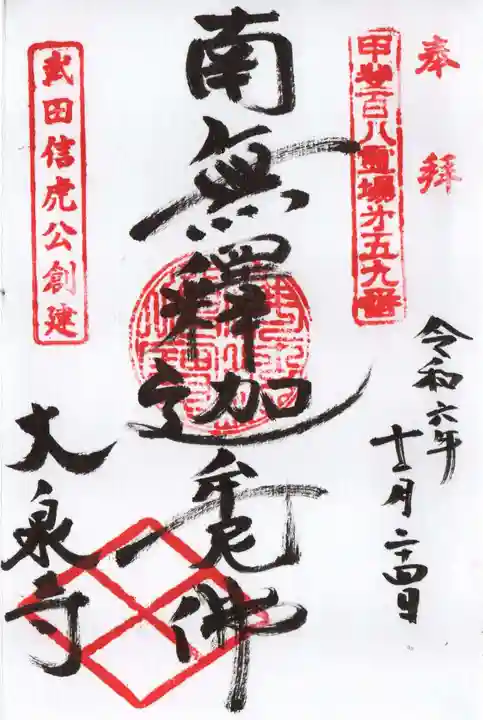 奉拝
甲斐百八霊場第五九番
令和六年
十二月二十四日
南無釋迦牟尼佛
武田信虎公創建
大泉寺